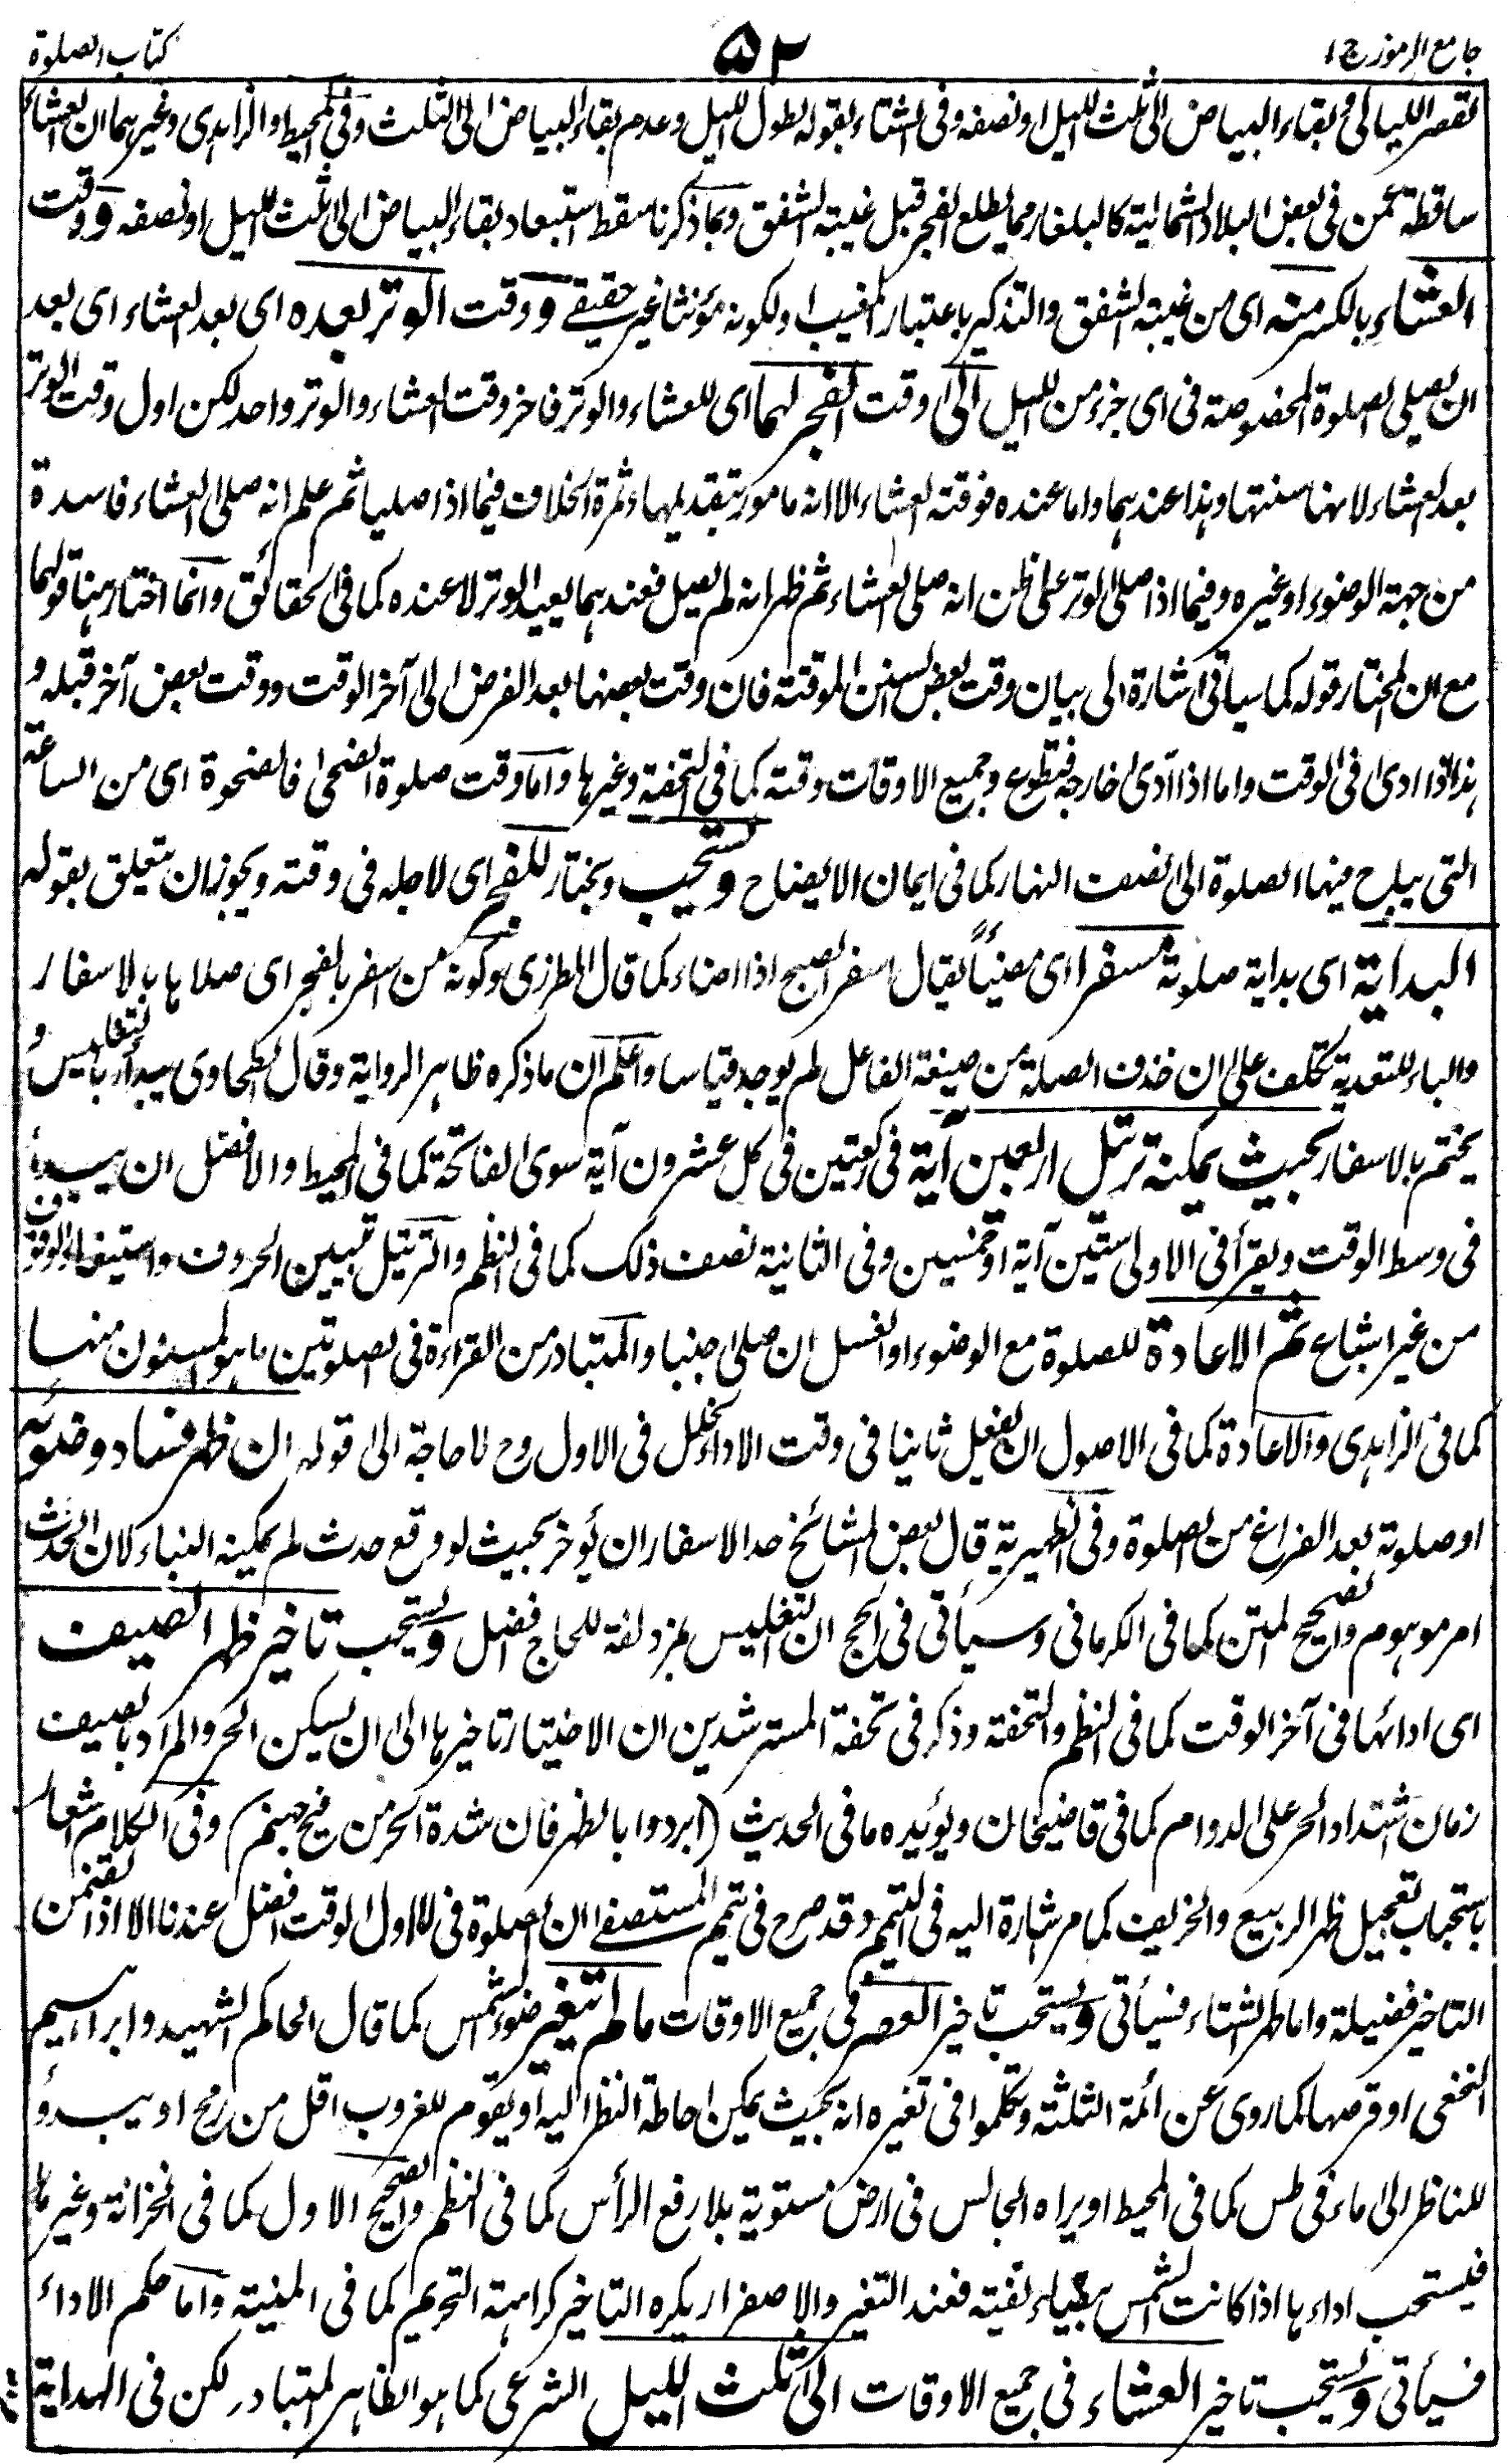 جامع الرموز ج ١
٥٢
كتاب الصلوة
لقصر الليالى فى بقاء البياض الى ثلث الليل او نصفه وفى الشتاء بقوله لطول الليل وعدم بقاء البياض الى الثلث وفى المحيط والزاهدى وغيرهما ان العشاء
ساقطة عمن فى بعض البلاد الشمالية كالبلغار مما يطلع الفجر قبل غيبة الشفق وبما ذكرنا سقط استبعاد بقاء البياض الى ثلث الليل او نصفه ووقت
العشاء بالكسر منه اى من غيبة الشفق والتذكير باعتبار المغيب او لكونه مؤنثا غير حقيقى ووقت الوتر بعده اى بعد العشاء اى بعد
ان يصلى الصلوة المخصوصة فى اى جزء من الليل الى وقت الفجر لهما اى للعشاء والوتر فاخر وقت العشاء والوتر واحد لكن اول وقت الوتر
بعد العشاء لانها سنتها وهذا عندهما واما عنده فوقته العشاء الا انه مامور بتقديمها وثمرة الخلاف فيما اذا صليا ثم علم انه صلى العشاء فاسدة
من جهة الوضوء او غيره وفيما اذا صلى الوتر على ظن انه صلى العشاء ثم ظهر انه لم يصل فعندهما يعيد الوتر لا عنده كما فى الحقائق وانما اختار هنا قولهما
مع ان المختار قوله كما سياتى اشارة الى بيان وقت بعض السنن الموقتة فان وقت بعضها بعد الفرض الى آخر الوقت ووقت بعض آخر قبله و
هذا اذا ادى فى الوقت واما اذا ادى خارجه فتطوع وجميع الاوقات وقته كما فى التحفة وغيرها واما وقت صلوة الضحى فالضحوة اى من الساعة
التى يباح فيها الصلوة الى نصف النهار كما فى ايمان الايضاح ويستحب ويختار للفجر اى لاجله فى وقته ويجوز ان يتعلق بقوله
البداية اى بداية صلوته مسفرا اى مضيئا يقال اسفر الصبح اذا اضاء كما قال المطرزى وكونه من اسفر بالفجر اى صلاها بالاسفار
والباء للتعدية تكلف على ان حذف الصلة من صيغة الفاعل لم يوجد قياسا واعلم ان ما ذكره ظاهر الرواية وقال الطحاوى يبدأ بالتغليس و
يختم بالاسفار بحيث يمكنه ترتيل اربعين آية فى ركعتين فى كل عشرون آية سوى الفاتحة كما فى المحيط والافضل ان يبدأ
فى وسط الوقت ويقرأ فى الاولى ستين آية او خمسين وفى الثانية نصف ذلك كما فى النظم والترتيل تبيين الحروف واستيفاء الوقوف
من غير اشباع ثم الاعادة للصلوة مع الوضوء او الغسل ان صلى جنبا والمتبادر من القراءة فى الصلوتين ما هو المسنون منها
كما فى الزاهدى والاعادة كما فى الاصول ان يفعل ثانيا فى وقت الاداء لخلل فى الاول وح لا حاجة الى قوله ان ظهر فساد وضوئه
او صلوته بعد الفراغ من الصلوة وفى الظهيرية قال بعض المشائخ حد الاسفار ان يؤخر بحيث لو وقع حدث لم يمكنه البناء لان الحدث
امر موهوم والصحيح المتن كما فى الكرمانى وسيأتى فى الحج ان التغليس بمزدلفة للحاج افضل ويستحب تاخير ظهر الصيف
اى ادائها فى آخر الوقت كما فى النظم والتحفة وذكر فى تحفة المسترشدين ان الاختيار تاخيرها الى ان يسكن الحر والمراد بالصيف
زمان اشتداد الحر على الدوام كما فى قاضيخان ويؤيده ما فى الحديث (ابردوا بالظهر فان شدة الحر من فيح جهنم) وفى الكلام اشعار
باستحباب تعجيل ظهر الربيع والخريف كما مر شارة اليه فى التيمم وقد صرح فى تيمم المستصفى ان الصلوة فى اول الوقت افضل عندنا الا اذا تضمن
التاخير فضيلة واما ظهر الشتاء فسيأتى ويستحب تاخير العصر فى جميع الاوقات ما لم تتغير ضوء الشمس كما قال الحاكم الشهيد وابراهيم
النخعى او قرصها كما روى عن ائمة الثلثة وتكلموا فى تغيره انه بحيث يمكن احاطة النظر اليه او يقوم للغروب اقل من رمح او يبدو
للناظر الى ماء فى طس كما فى المحيط او يراه الجالس فى ارض مستوية بلا رفع الرأس كما فى النظم والصحيح الاول كما فى الخزانة وغيرها
فيستحب اداءها اذا كانت الشمس بيضاء نقية فعند التغير والاصفرار يكره التاخير كراهة التحريم كما فى المنية واما حكم الاداء
فسيأتى ويستحب تاخير العشاء فى جميع الاوقات الى ثلث الليل الشرعى كما هو الظاهر المتبادر لكن فى الهداية